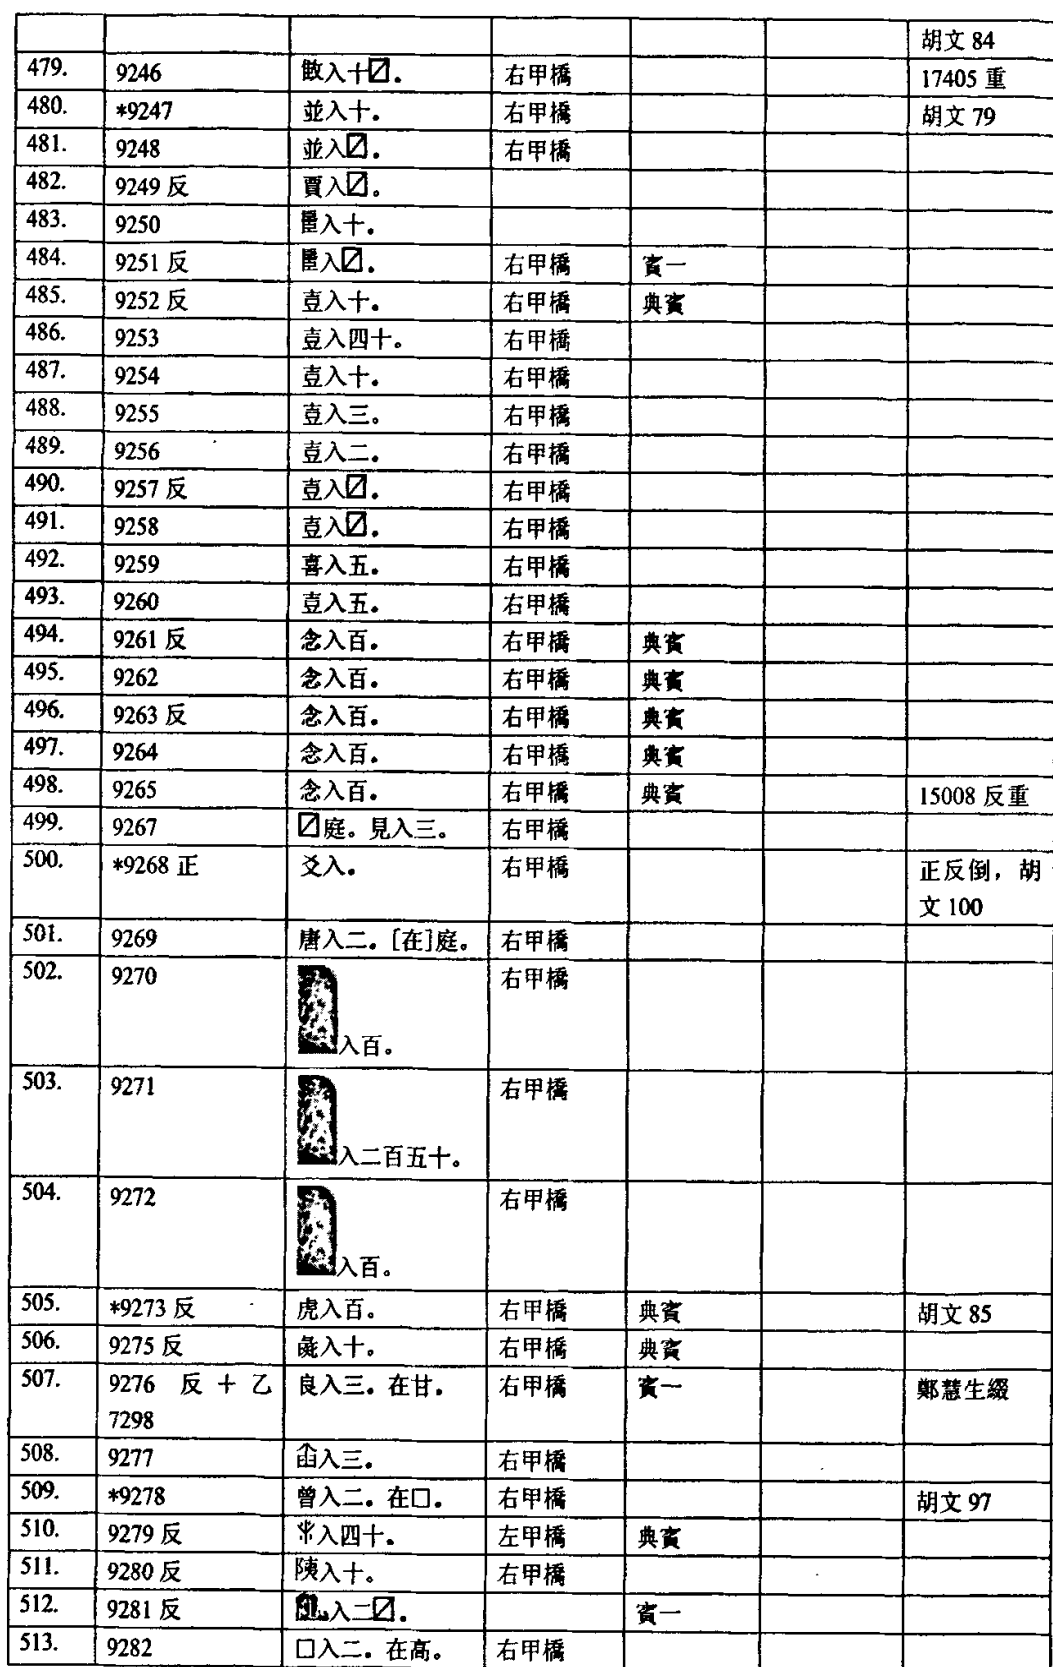 胡文 84
479. 9246 㪔入十〼. 右甲橋 17405 重
480. *9247 並入十. 右甲橋 胡文 79
481. 9248 並入〼. 右甲橋
482. 9249 反 賈入〼.
483. 9250 入十.
484. 9251 反 入〼. 右甲橋 賓一
485. 9252 反 壴入十. 右甲橋 典賓
486. 9253 壴入四十。 右甲橋
487. 9254 壴入十。 右甲橋
488. 9255 壴入三。 右甲橋
489. 9256 壴入二。 右甲橋
490. 9257 反 壴入〼. 右甲橋
491. 9258 壴入〼. 右甲橋
492. 9259 喜入五. 右甲橋
493. 9260 壴入五. 右甲橋
494. 9261 反 念入百. 右甲橋 典賓
495. 9262 念入百. 右甲橋 典賓
496. 9263 反 念入百. 右甲橋 典賓
497. 9264 念入百. 右甲橋 典賓
498. 9265 念入百. 右甲橋 典賓 15008 反重
499. 9267 〼庭。見入三。 右甲橋
500. *9268 正 爻入. 右甲橋 正反倒，胡
文 100
501. 9269 唐入二. [在]庭. 右甲橋
502. 9270 右甲橋
入百.
503. 9271 右甲橋
入二百五十。
504. 9272 右甲橋
入百.
505. *9273 反 虎入百. 右甲橋 典賓 胡文 85
506. 9275 反 彘入十. 右甲橋 典賓
507. 9276 反 ＋ 乙 良入三. 在甘. 右甲橋 賓一 鄭慧生綴
7298
508. 9277 入三. 右甲橋
509. *9278 曾入二. 在□. 右甲橋 胡文 97
510. 9279 反 入四十. 左甲橋 典賓
511. 9280 反 入十。 右甲橋
512. 9281 反 入二〼. 賓一
513. 9282 □入二. 在高. 右甲橋